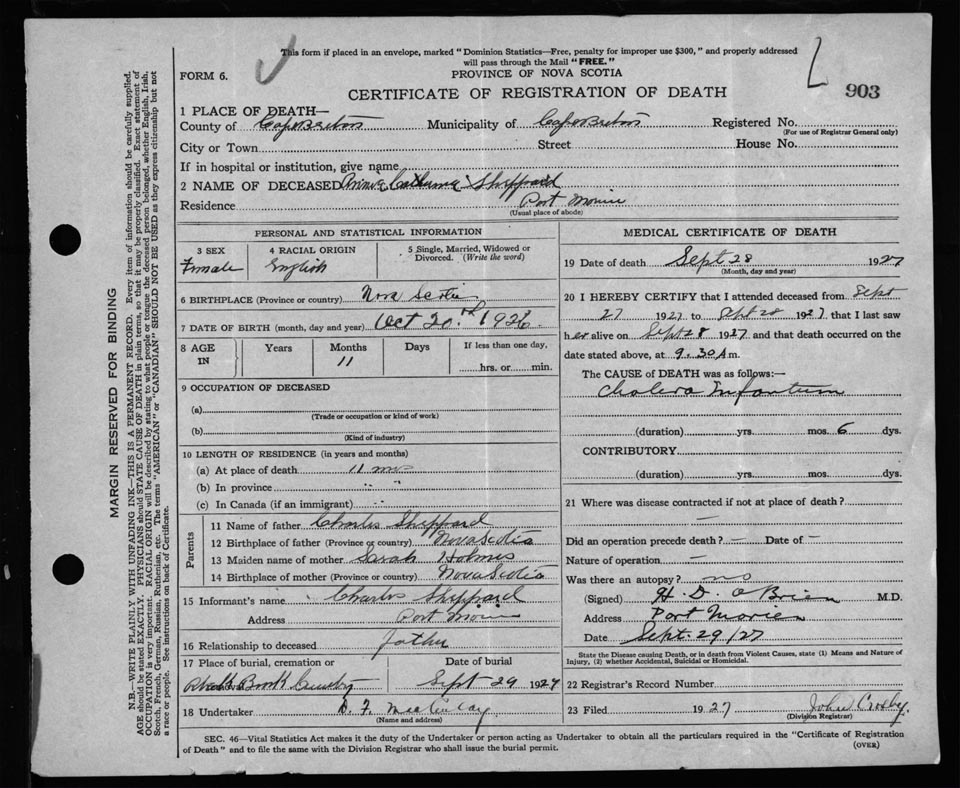 This form if placed in an envelope, marked "Dominion Statistics—Free, penalty for improper use $300," and properly addressed
will pass through the Mail "FREE."
FORM 6.
PROVINCE OF NOVA SCOTIA
CERTIFICATE OF REGISTRATION OF DEATH
903
1 PLACE OF DEATH—
County of Cape Breton Municipality of Cape Breton Registered No.
(For use of Registrar General only)
City or Town Street House No.
If in hospital or institution, give name
2 NAME OF DECEASED Catherine Sheppard
Residence Port Morien
(Usual place of abode)
PERSONAL AND STATISTICAL INFORMATION
3 SEX
Female
4 RACIAL ORIGIN
English
5 Single, Married, Widowed or
Divorced. (Write the word)
6 BIRTHPLACE (Province or country) Nova Scotia
7 DATE OF BIRTH (month, day and year) Oct 20th 1926
8 AGE
IN
Years
Months
11
Days
If less than one day,
hrs. or min.
9 OCCUPATION OF DECEASED
(a)
(Trade or occupation or kind of work)
(b)
(Kind of industry)
10 LENGTH OF RESIDENCE (in years and months)
(a) At place of death 11 mos
(b) In province " "
(c) In Canada (if an immigrant) " "
Parents
11 Name of father Charles Sheppard
12 Birthplace of father (Province or country) Nova Scotia
13 Maiden name of mother Sarah Holmes
14 Birthplace of mother (Province or country) Nova Scotia
15 Informant's name Charles Sheppard
Address Port Morien
16 Relationship to deceased Father
17 Place of burial, cremation or
Brook
Date of burial
Sept 29 1927
18 Undertaker
(Name and address)
MEDICAL CERTIFICATE OF DEATH
19 Date of death Sept 28 1927
(Month, day and year)
20 I HEREBY CERTIFY that I attended deceased from Sept
27 1927 to Sept 28 1927 that I last saw
her alive on Sept 28 1927 and that death occurred on the
date stated above, at 9.30 A m.
The CAUSE of DEATH was as follows:—
Cholera Infantum
(duration) yrs. mos. 6 dys.
CONTRIBUTORY
(duration) yrs. mos. dys.
21 Where was disease contracted if not at place of death?
—
Did an operation precede death? — Date of —
Nature of operation —
Was there an autopsy? no
(Signed) H. D. O'Brien M.D.
Address Port Morien
Date Sept. 29/27
State the Disease causing Death, or in death from Violent Causes, state (1) Means and Nature of
Injury, (2) whether Accidental, Suicidal or Homicidal.
22 Registrar's Record Number
23 Filed 1927 John Crosby.
(Division Registrar)
SEC. 46—Vital Statistics Act makes it the duty of the Undertaker or person acting as Undertaker to obtain all the particulars required in the "Certificate of Registration
of Death" and to file the same with the Division Registrar who shall issue the burial permit.
(OVER)
MARGIN RESERVED FOR BINDING
N.B.—WRITE PLAINLY WITH UNFADING INK—THIS IS A PERMANENT RECORD. Every item of information should be carefully supplied.
AGE should be stated EXACTLY. PHYSICIANS should STATE CAUSE OF DEATH in plain terms, so that it may be properly classified. Exact statement of
OCCUPATION is very important. RACIAL ORIGIN will be described by stating to what people or tongue the deceased person belonged, whether English, Irish,
Scotch, French, German, Russian, Ruthenian, etc. The terms "AMERICAN" or "CANADIAN" SHOULD NOT BE USED as they express citizenship but not
a race or people. See instructions on back of Certificate.